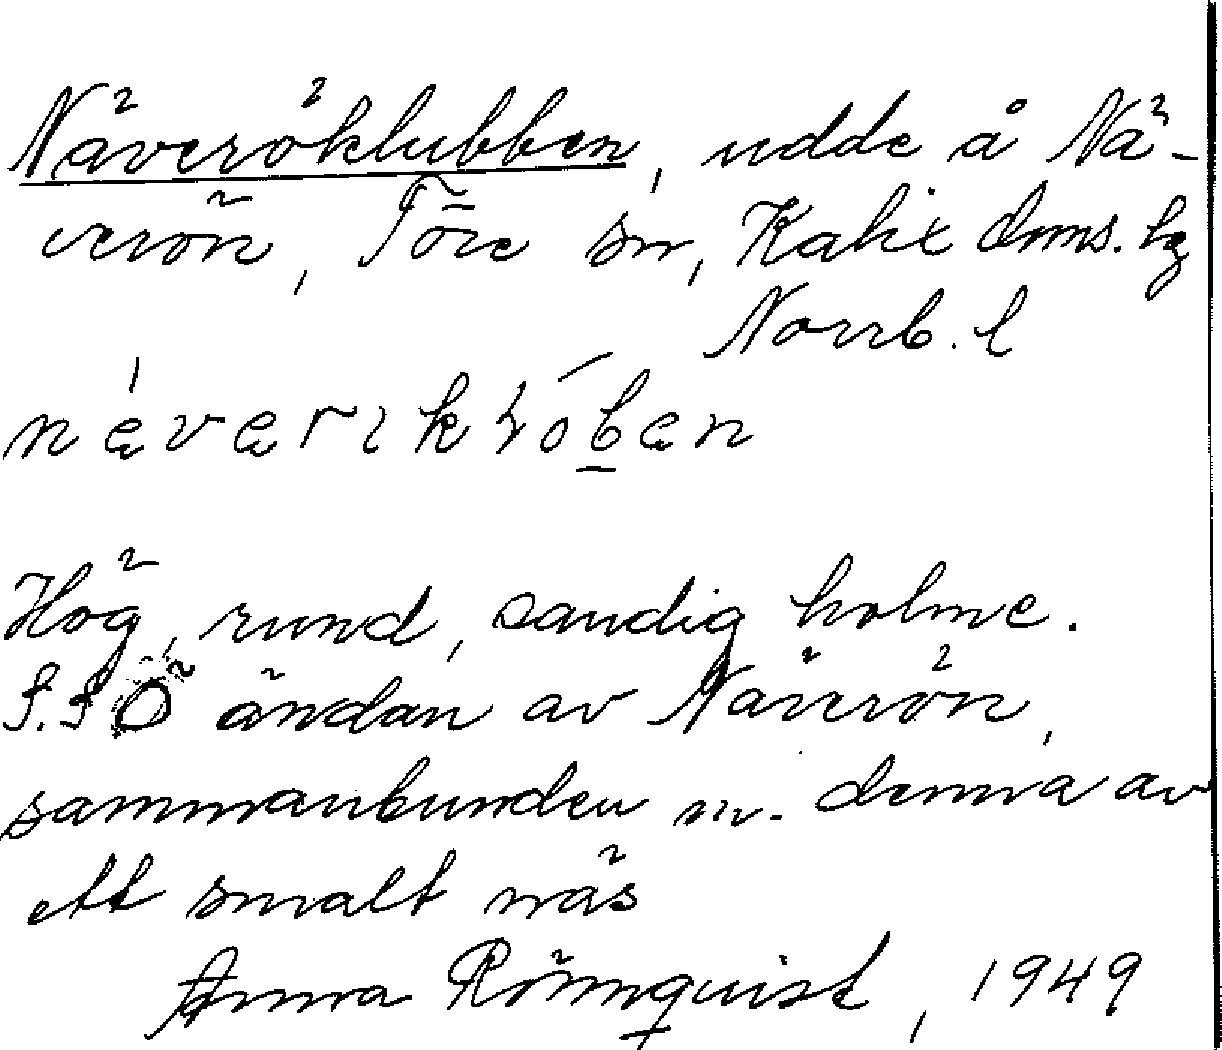 Näveröklubben, udde å Nä-
verön, Töre sn, Kalix doms. hg
Norrb. l
Hög, rund, sandig holme.
S.SÖ ändan av Näverön,
sammanbunden m. denna av
ett smalt näs
Anna Rönnquist, 1949